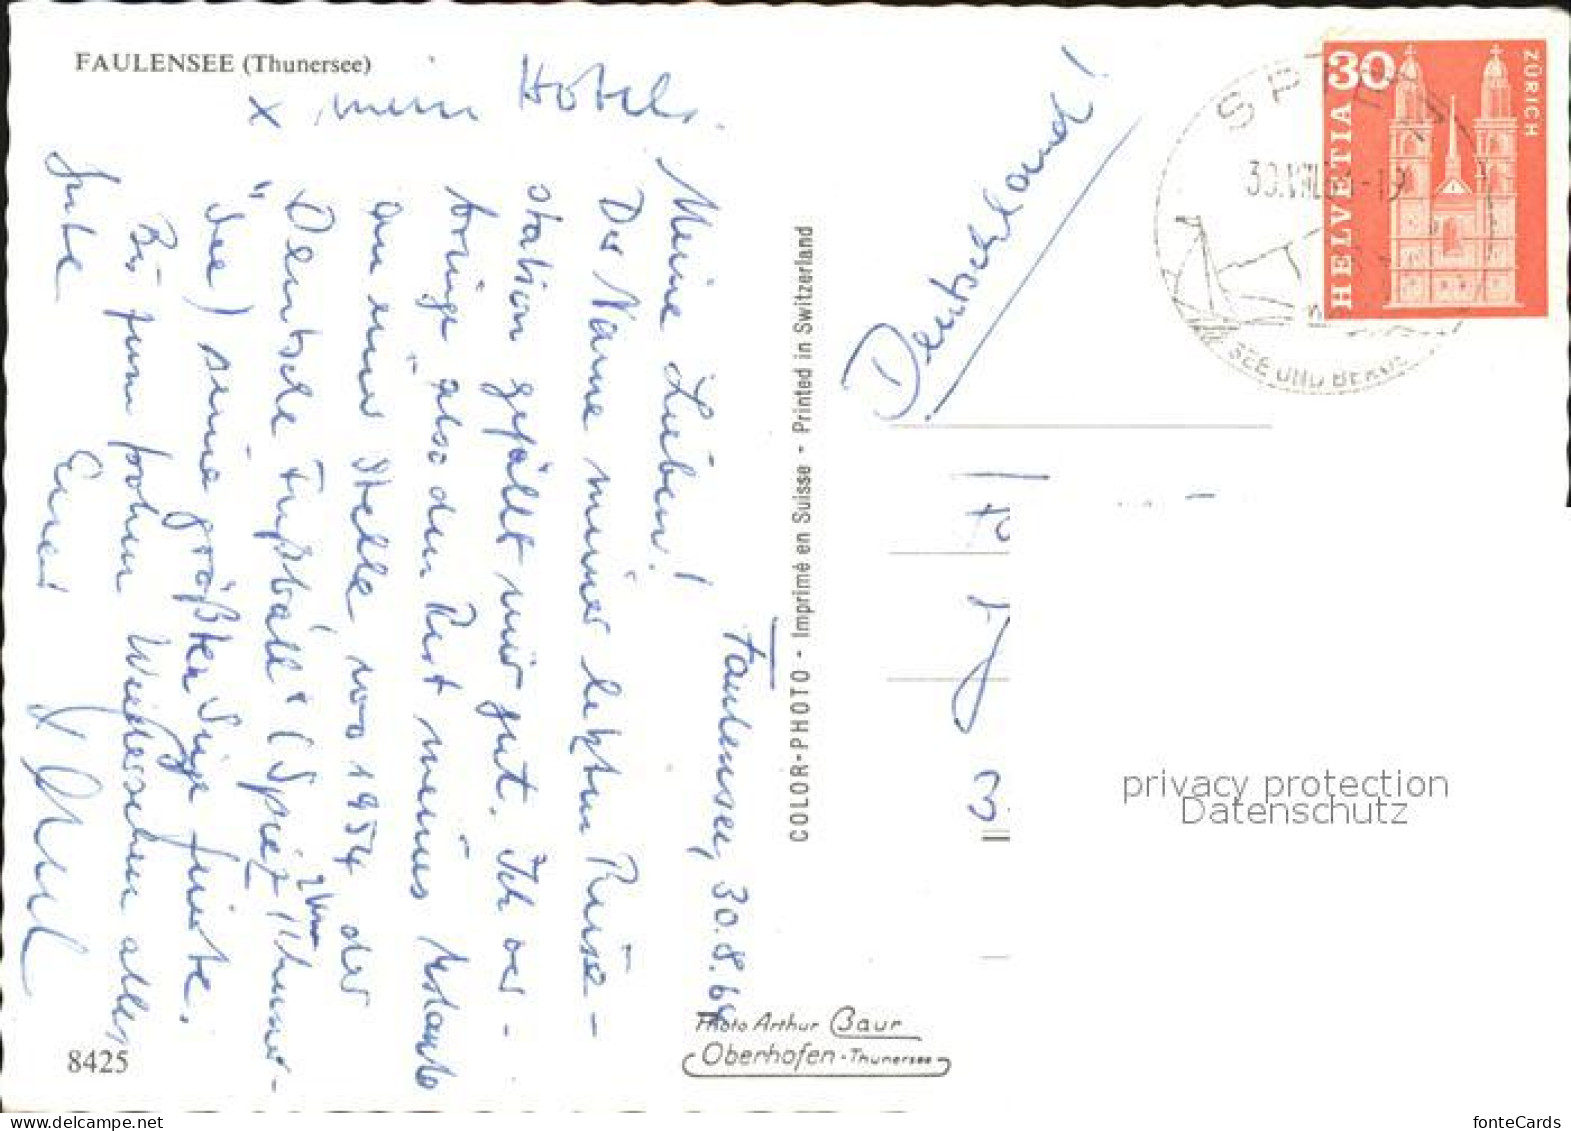 FAULENSEE (Thunersee)
x mein Hotel.
Faulensee, 30.8.64
Meine Lieben!
Der Name meiner letzten Reise-
station gefällt mir gut. Ich ver-
bringe also den Rest meines Urlaubs
an einer Stelle, wo 1954 der
Deutsche Fußball (Spiez Thuner-
see) seine größten Siege feierte.
Bis zum frohen Wiedersehen alles
Gute Euer
8425
COLOR-PHOTO - Imprimé en Suisse - Printed in Switzerland
Photo Arthur Baur
Oberhofen - Thunersee
Deutschland!
SPIEZ
SEE UND BERGE
30
HELVETIA
ZÜRICH
privacy protection
Datenschutz
fonteCards